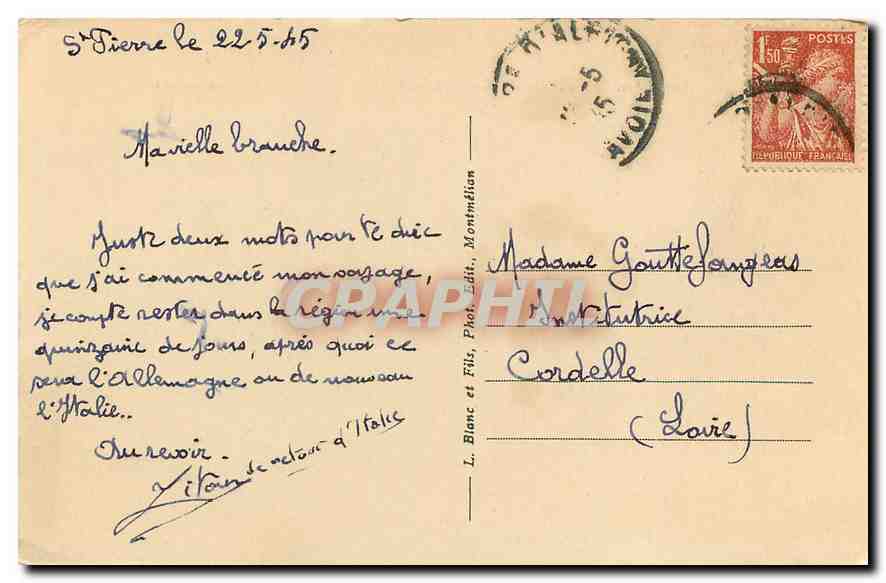 St Pierre le 22-5-45
Ma vielle branche.
Juste deux mots pour te dire
que j'ai commencé mon voyage,
je compte rester dans la région une
quinzaine de jours, après quoi ce
sera l'Allemagne ou de nouveau
l'Italie..
Au revoir.
de retour d'Italie
L. Blanc et Fils, Phot. Edit., Montmélian
1F50
POSTES
REPUBLIQUE FRANÇAISE
Madame Gouttefangeas
Institutrice
Cordelle
(Loire)
CPAPHIL